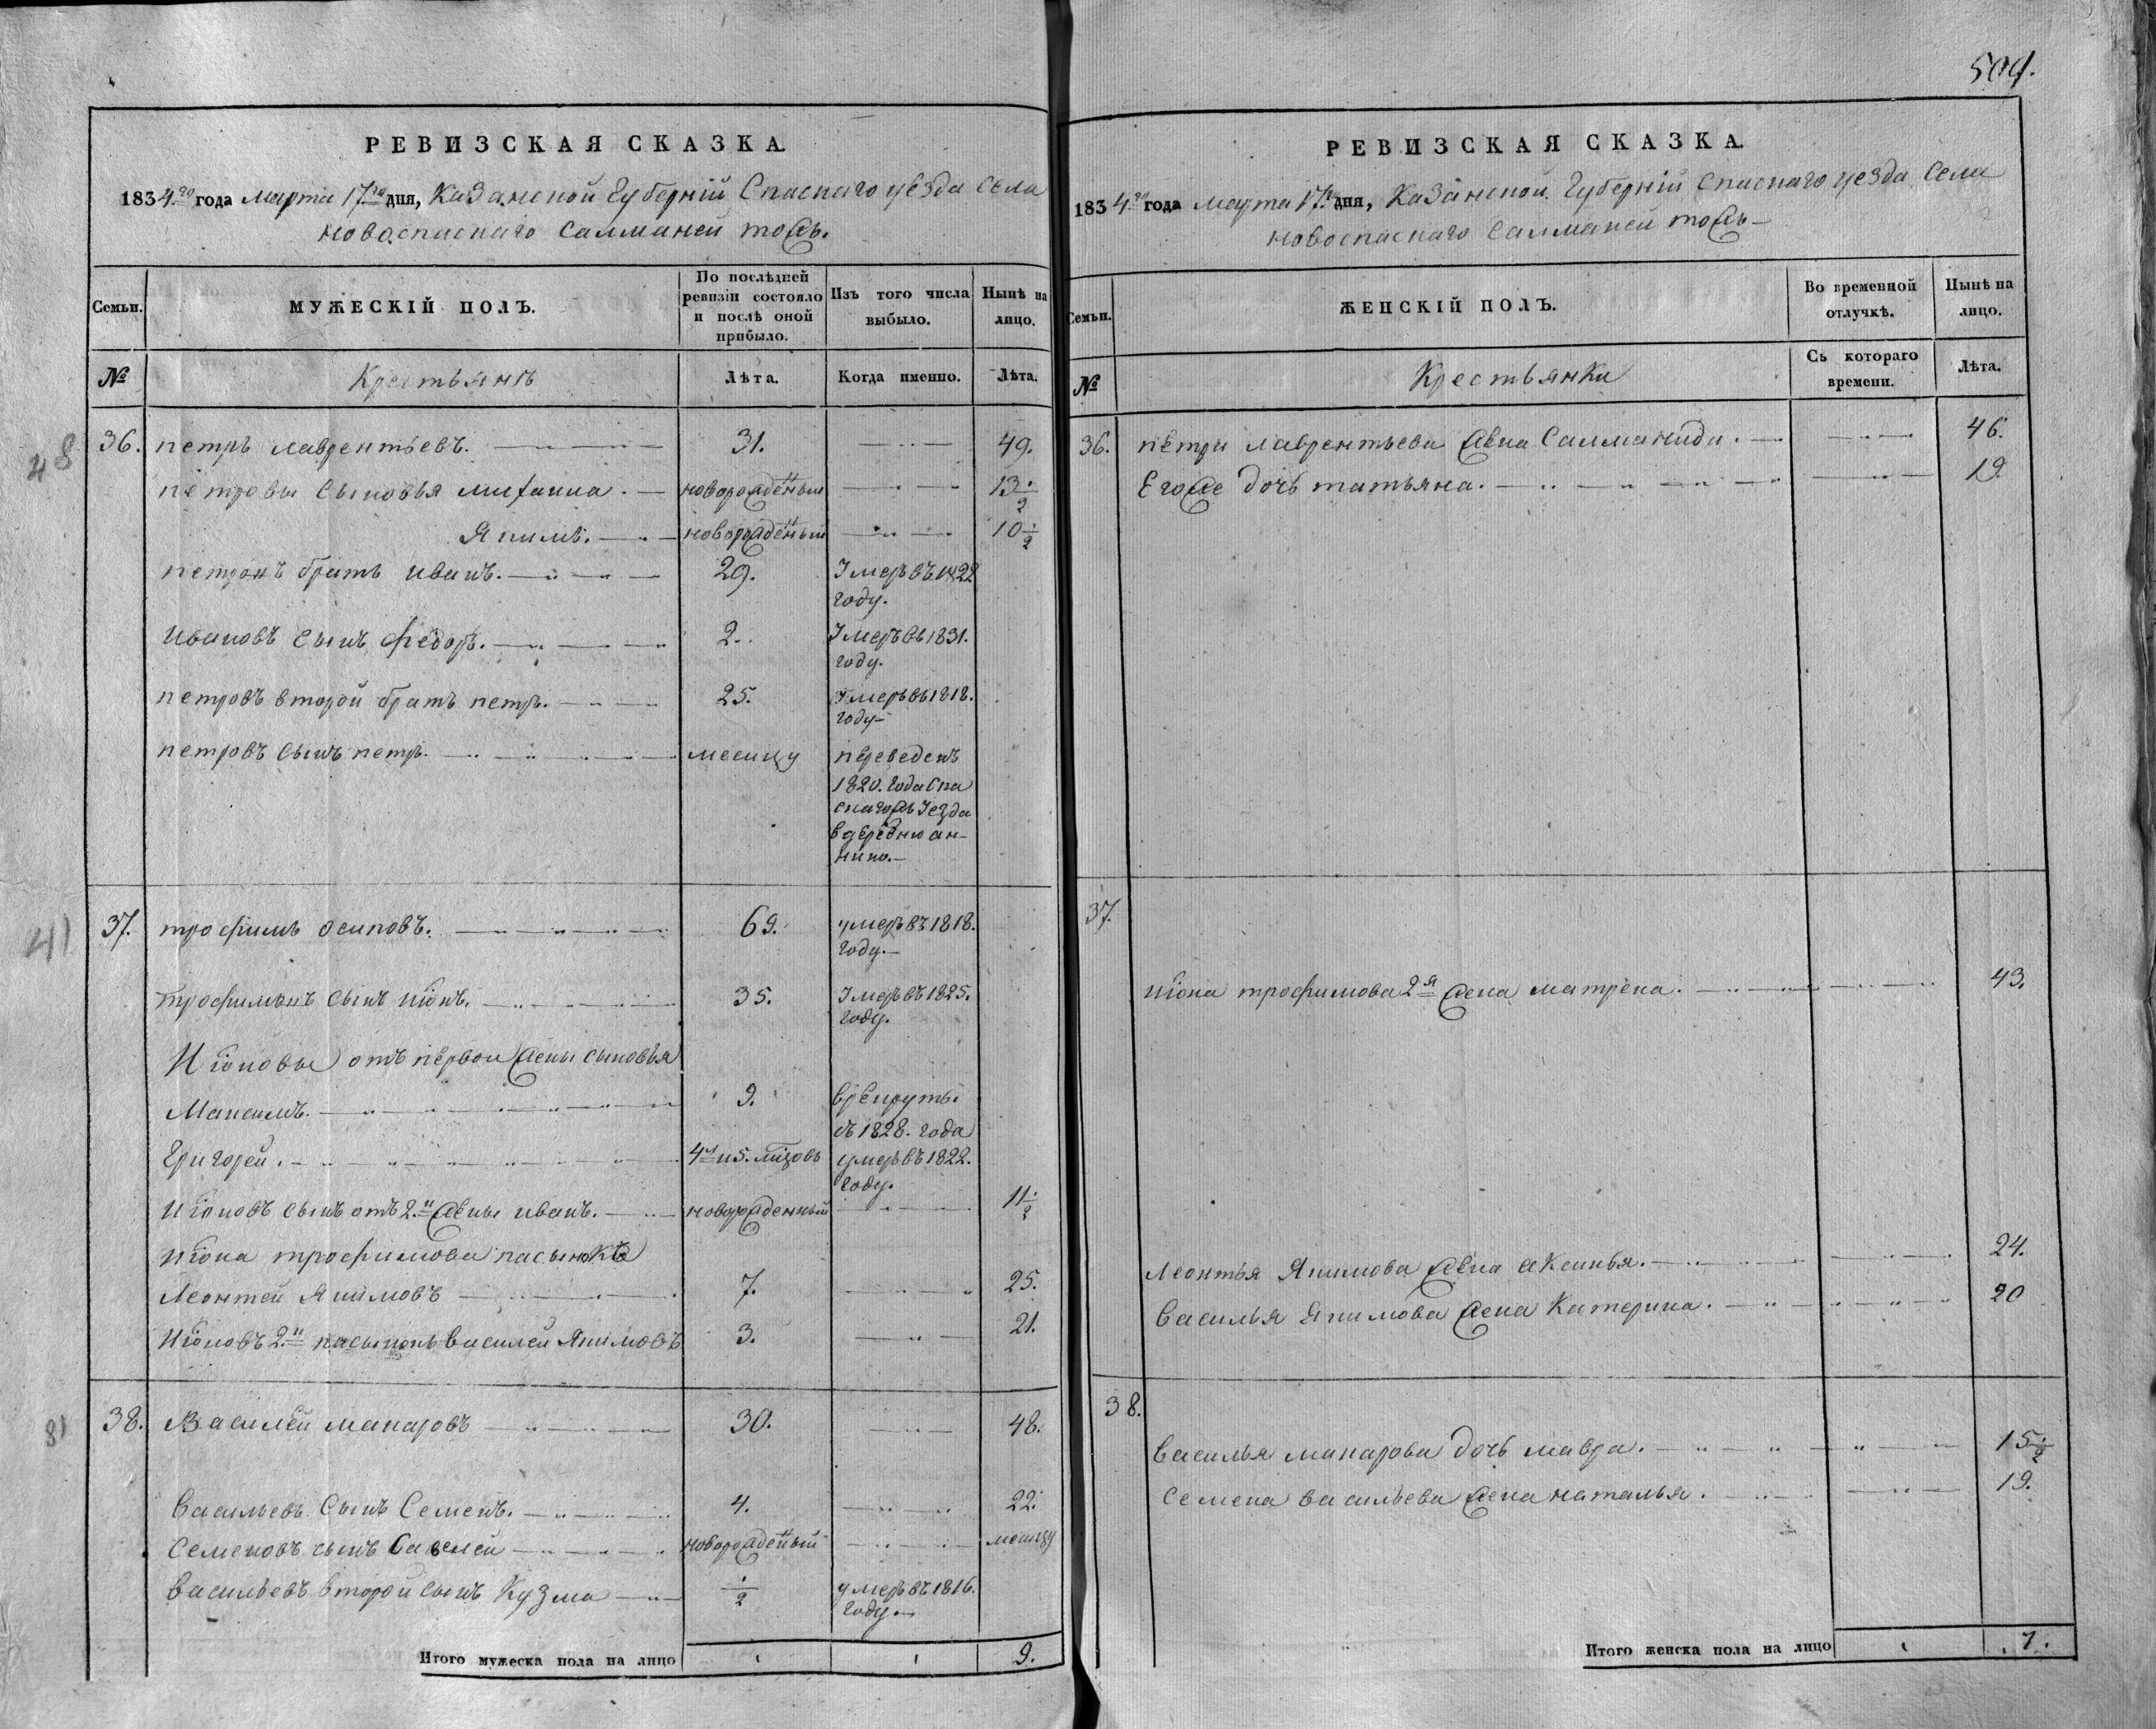 504.
РЕВИЗСКАЯ СКАЗКА.
1834.го года марта 17го дня, Казанской Губерній Спаскаго уезда села
новоспаскаго Салманей тожъ.
Семьи. МУЖЕСКІЙ ПОЛЪ. По послѣдней ревизіи состояло и послѣ оной прибыло. Изъ того числа выбыло. Нынѣ на лицо.
№ Крестьянъ Лѣта. Когда именно. Лѣта.
48 36. петръ лаврентьевъ. 31. 49.
петровы сыновья михаила. новорожденыи 13 ½
Якимъ. новорожденый 10 ½
петровъ братъ иванъ. 29. Умеръ въ 1822
году.
ивановъ сынъ федоръ. 2. Умеръ въ 1831.
году.
петровъ второй братъ петръ. 25. Умеръ въ 1818.
году
петровъ сынъ петръ. месицу переведенъ
1820. года Спа
скагожъ Уезда
в деревню ан-
нино.
41 37. трофимъ осиповъ. 69. умеръ въ 1818.
году.
трофимовъ сынъ иіонъ. 35. Умеръ въ 1825.
году.
Иіоновы отъ первои жены сыновья
Максимъ. 9. врекруты
съ 1828. года
Григорей. 4 и 5. мцовъ умеръ въ 1822.
году.
Иіоновъ сынъ отъ 2.й жены иванъ. новорожденный 11 ½
Иіона трофимова пасынки
Леонтей Якимовъ 7. 25.
Иіоновъ 2.й пасынокъ василей Якимовъ 3. 21.
81 38. Василей макаровъ 30. 48.
Васильевъ Сынъ Семенъ. 4. 22.
Семеновъ сынъ Савелей новорожденый месицу
Васильевъ второй сынъ Кузма ½ умеръ въ 1816.
году.
Итого мужеска пола на лицо 9.
РЕВИЗСКАЯ СКАЗКА.
1834го года марта 17.го дня, Казанской Губерній Спаскаго уезда Села
новоспаскаго Салманей тожъ
Семьи. ЖЕНСКІЙ ПОЛЪ. Во временной отлучкѣ. Нынѣ на лицо.
№ Крестьянки Съ котораго времени. Лѣта.
36. петра лаврентьева жена Салманида. 46.
Егоже дочь татьяна. 19.
37.
иіона трофимова 2я жена матрена. 43.
Леонтья Якимова жена аксинья. 24.
Василья Якимова жена Катерина. 20
38.
Василья макарова дочь мавра. 15 ½
Семена васильева жена наталья. 19.
Итого женска пола на лицо 7.